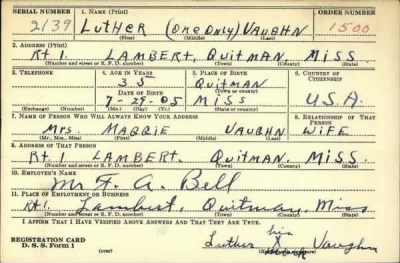 SERIAL NUMBER 1. NAME (Print) ORDER NUMBER
2139 LUTHER (ONE ONLY) VAUGHN 1500
(First) (Middle) (Last)
2. ADDRESS (Print)
Rt 1. LAMBERT, QUITMAN MISS.
(Number and street or R. F. D. number) (Town) (County) (State)
3. TELEPHONE 4. AGE IN YEARS 5. PLACE OF BIRTH 6. COUNTRY OF CITIZENSHIP
35 QUITMAN
DATE OF BIRTH (Town or county)
7-29-05 MISS U.S.A.
(Exchange) (Number) (Mo.) (Day) (Yr.) (State or country)
7. NAME OF PERSON WHO WILL ALWAYS KNOW YOUR ADDRESS 8. RELATIONSHIP OF THAT PERSON
Mrs. MAGGIE VAUGHN WIFE
(Mr., Mrs., Miss) (First) (Middle) (Last)
9. ADDRESS OF THAT PERSON
Rt. 1. LAMBERT. QUITMAN, MISS.
(Number and street or R. F. D. number) (Town) (County) (State)
10. EMPLOYER'S NAME
Mr. F. A. Bell
11. PLACE OF EMPLOYMENT OR BUSINESS
Rt 1. Lambert, Quitman, Miss
(Number and street or R. F. D. number) (Town) (County) (State)
I AFFIRM THAT I HAVE VERIFIED ABOVE ANSWERS AND THAT THEY ARE TRUE.
his
REGISTRATION CARD Luther X Vaughn
D. S. S. Form 1 (over) mark